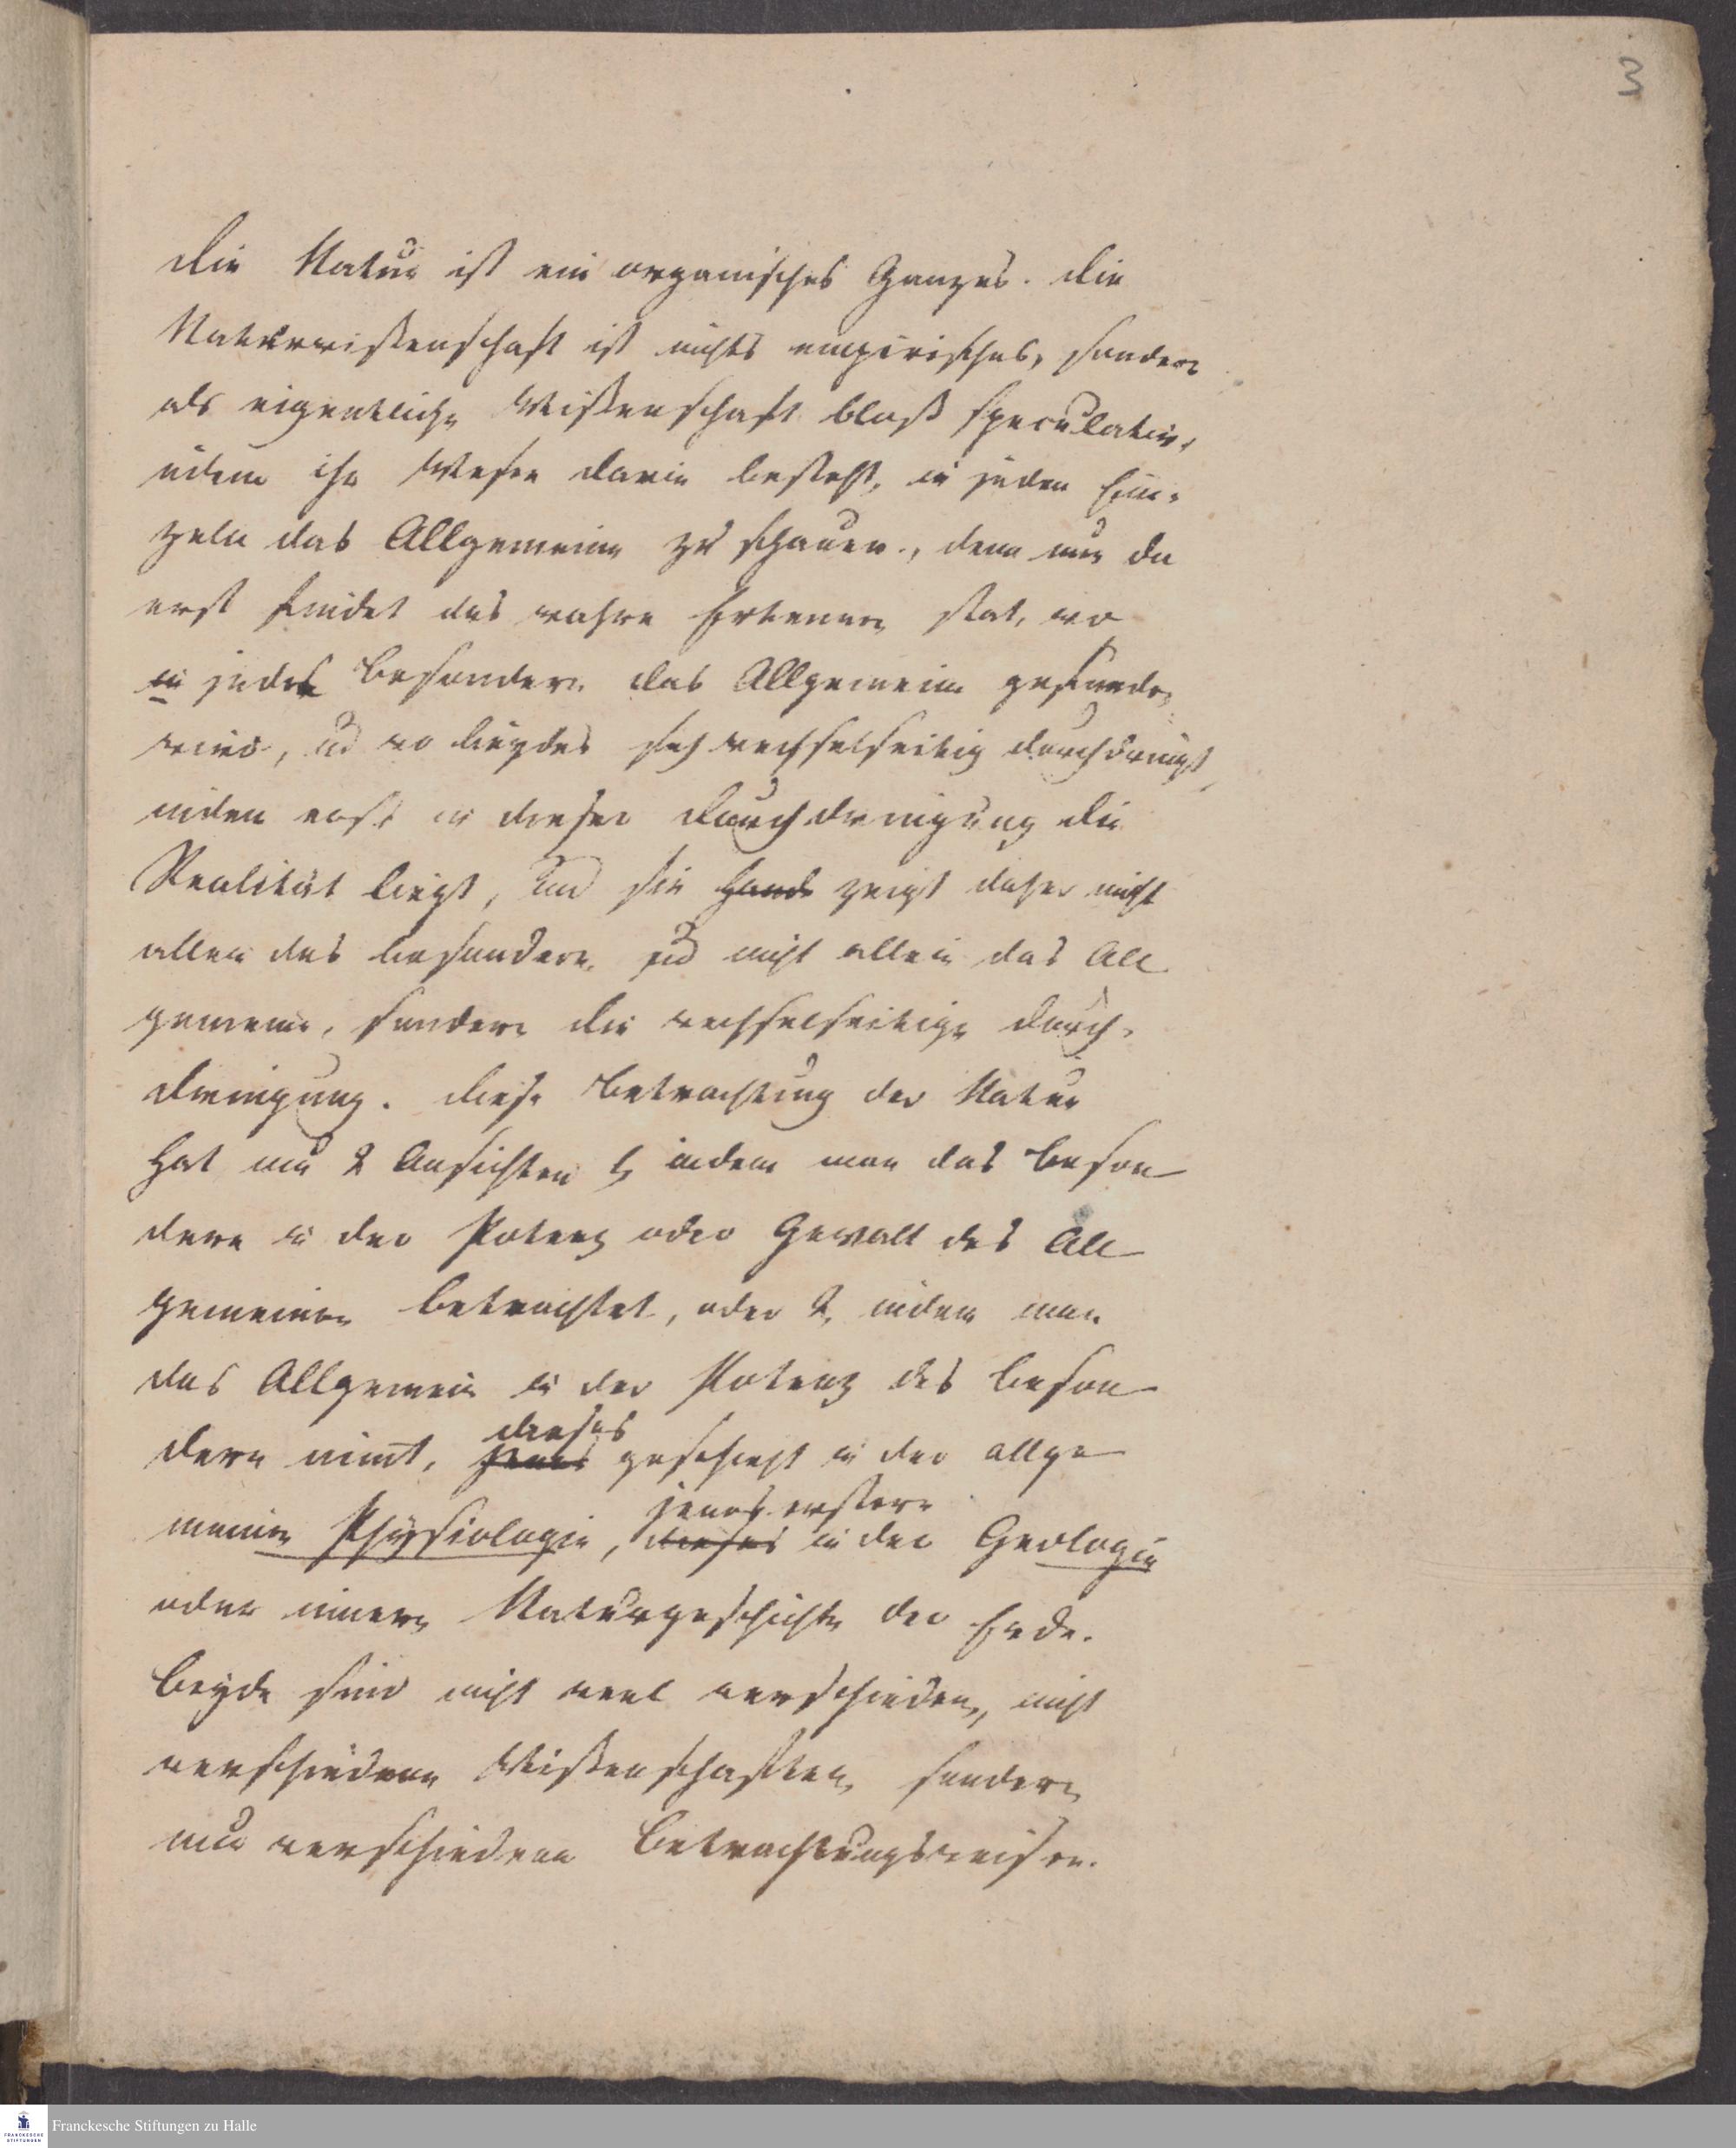 3
Die Natur ist ein organisches Ganzes. Die
Naturwißenschaft ist nichts empirisches, sondern
als eigentliche Wißenschaft bloß speculativ,
indem ihr Wesen darin besteht, in jeden Ein-
zeln das Allgemeine zu schauen, denn nur da
erst findet das wahre Erkennen stat, wo
in jedes Besondern das Allgemeine gefunden
wird, und wo beydes sich wechselseitig durchdringt,
indem erst in dieser Durchdringung die
Realität liegt, und sie Hand zeigt daher nicht
allein das besondere und nicht allein das All
gemeine, sondern die wechselseitige Durch-
dringung. Diese Betrachtung der Natur
hat nur 2 Ansichten 1, indem man das Beson
dere in der Potenz oder Gewalt des All
gemeinen betrachtet, oder 2, indem man
das Allgemein in der Potenz des Beson
dern nimt, jenes geschieht in der allge
dieses
meinen Physiologie, dieses in der Geologie
jenes erstere
oder innern Naturgeschichte der Erde.
Beyde sind nicht reel verschieden, nicht
verschiedene Wißenschaften, sondern
nur verschiedene Betrachtungsweisen.
FRANCKESCHE STIFTUNGEN
Franckesche Stiftungen zu Halle